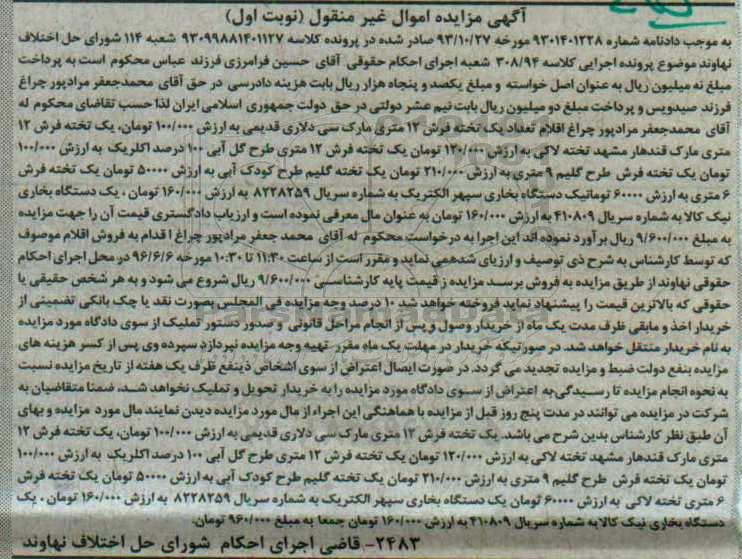 آگهی مزایده اموال غیر منقول (نوبت اول)
به موجب دادنامه شماره ۹۳۰۱۴۰۱۲۲۸ مورخه ۹۳/۱۰/۲۷ صادر شده در پرونده کلاسه ۹۳۰۹۹۸۸۱۴۰۱۱۲۷ شعبه ۱۱۴ شورای حل اختلاف
نهاوند موضوع پرونده اجرایی کلاسه ۳۰۸/۹۴ شعبه اجرای احکام حقوقی آقای حسین فرامرزی فرزند عباس محکوم است به پرداخت
مبلغ نه میلیون ریال به عنوان اصل خواسته و مبلغ یکصد و پنجاه هزار ریال بابت هزینه دادرسی در حق آقای محمدجعفر مرادپور چراغ
فرزند صیدویس و پرداخت مبلغ دو میلیون ریال بابت نیم عشر دولتی در حق دولت جمهوری اسلامی ایران لذا حسب تقاضای محکوم له
آقای محمدجعفر مرادپور چراغ اقلام تعداد یک تخته فرش ۱۲ متری مارک سی دلاری قدیمی به ارزش ۱۰۰/۰۰۰ تومان، یک تخته فرش ۱۲
متری مارک قندهار مشهد تخته لاکی به ارزش ۱۲۰/۰۰۰ تومان یک تخته فرش ۱۲ متری طرح گل آبی ۱۰۰ درصد اکلریک به ارزش ۱۰۰/۰۰۰
تومان یک تخته فرش طرح گلیم ۹ متری به ارزش ۲۱۰/۰۰۰ تومان یک تخته گلیم طرح کودک آبی به ارزش ۵۰۰۰۰ تومان یک تخته فرش
۶ متری به ارزش ۶۰۰۰۰ توماتیک دستگاه بخاری سپهر الکتریک به شماره سریال ۸۲۲۸۲۵۹ به ارزش ۱۶۰/۰۰۰ تومان ، یک دستگاه بخاری
نیک کالا به شماره سریال ۴۱۰۸۰۹ به ارزش ۱۶۰/۰۰۰ تومان به عنوان مال معرفی نموده است و ارزیاب دادگستری قیمت آن را جهت مزایده
به مبلغ ۹/۶۰۰/۰۰۰ ریال برآورد نموده اند این اجرا به درخواست محکوم له آقای محمد جعفر مرادپور چراغ اقدام به فروش اقلام موصوف
که توسط کارشناس به شرح ذی توصیف و ارزیای شدهمی نماید و مقرر است از ساعت ۱۱:۳۰ تا ۱۰:۳۰ مورخه ۹۶/۶/۶ در محل اجرای احکام
حقوقی نهاوند از طریق مزایده به فروش برسد مزایده ز قیمت پایه کارشناسی ۹/۶۰۰/۰۰۰ ریال شروع می شود و به هر شخص حقیقی یا
حقوقی که بالاترین قیمت را پیشنهاد نماید فروخته خواهد شد ۱۰ درصد وجه مزایده فی المجلس بصورت نقد یا چک بانکی تضمینی از
خریدار اخذ و مابقی ظرف مدت یک ماه از خریدار وصول و پس از انجام مراحل قانونی و صدور دستور تملیک از سوی دادگاه مورد مزایده
به نام خریدار منتقل خواهد شد. در صورتیکه خریدار در مهلت یک ماه مقرر تهیه وجه مزایده نپردازد سپرده وی پس از کسر هزینه های
مزایده بنفع دولت ضبط و مزایده تجدید می گردد. در صورت ایصال اعتراض از سوی اشخاص ذینفع ظرف یک هفته از تاریخ مزایده نسبت
به نحوه انجام مزایده تا رسیدگی به اعتراض از سوی دادگاه مورد مزایده را به خریدار تحویل و تملیک نخواهد شد. ضمنا متقاضیان به
شرکت در مزایده می توانند در مدت پنج روز قبل از مزایده با هماهنگی این اجراء از مال مورد مزایده دیدن نمایند مال مورد مزایده و بهای
آن طبق نظر کارشناس بدین شرح می باشد. یک تخته فرش ۱۲ متری مارک سی دلاری قدیمی به ارزش ۱۰۰/۰۰۰ تومان، یک تخته فرش ۱۲
متری مارک قندهار مشهد تخته لاکی به ارزش ۱۲۰/۰۰۰ تومان یک تخته فرش ۱۲ متری طرح گل آبی ۱۰۰ درصد اکلریک به ارزش ۱۰۰/۰۰۰
تومان یک تخته فرش طرح گلیم ۹ متری به ارزش ۲۱۰/۰۰۰ تومان یک تخته گلیم طرح کودک آبی به ارزش ۵۰۰۰۰ تومان یک تخته فرش
۶ متری تخته لاکی به ارزش ۶۰۰۰۰ تومان یک دستگاه بخاری سپهر الکتریک به شماره سریال ۸۲۲۸۲۵۹ به ارزش ۱۶۰/۰۰۰ تومان ، یک
دستگاه بخاری نیک کالا به شماره سریال ۴۱۰۸۰۹ به ارزش ۱۶۰/۰۰۰ تومان جمعا به مبلغ ۹۶۰/۰۰۰ تومان.
۲۴۸۳- قاضی اجرای احکام شورای حل اختلاف نهاوند